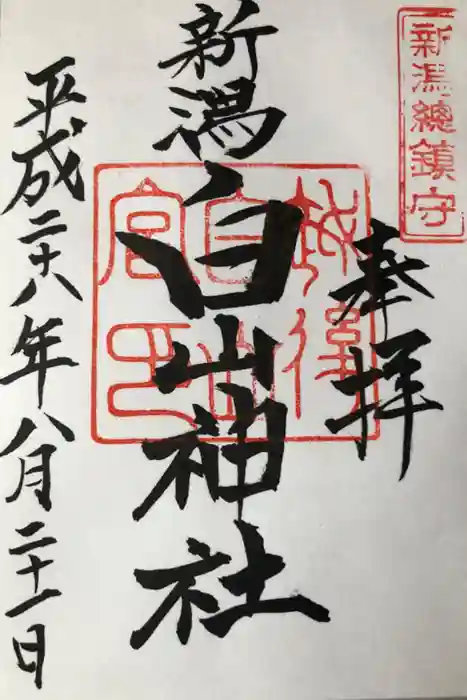 新潟總鎮守
奉拝
新潟白山神社
越後
白山
宮印
平成二十八年八月二十一日